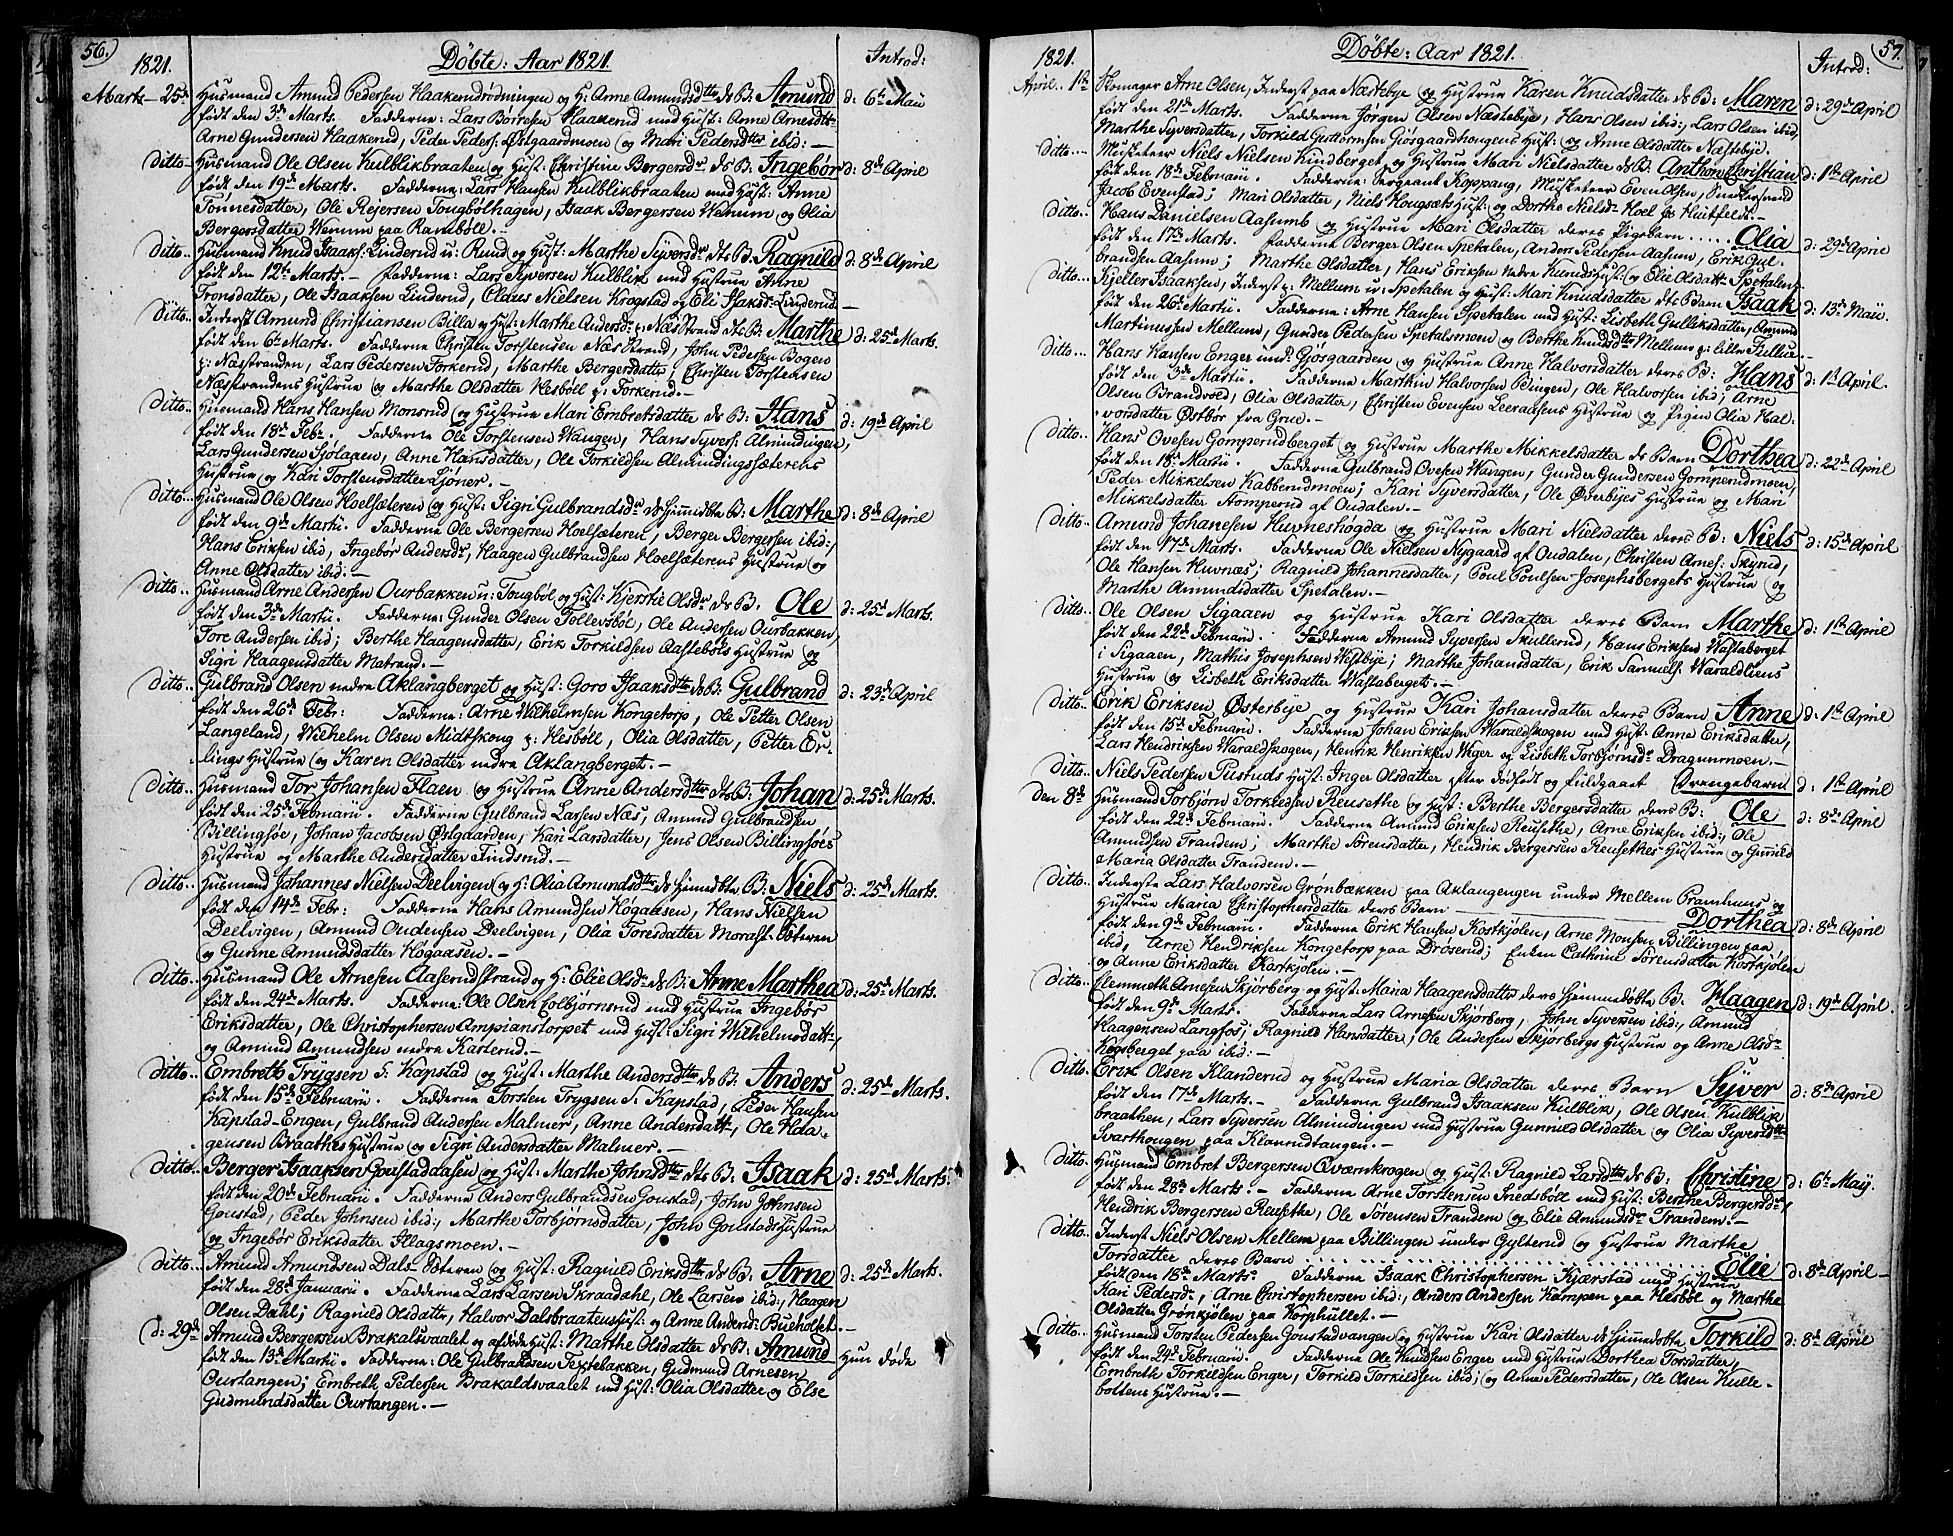 56.)
1821.
Döbte: Aar 1821.
Introd:
Marts 25de Husmand Amund Pedersen Haakerudrödningen og H: Anne Amundsdttr ds B: Amund d: 6te Maii
födt den 3de Marts. Fadderne: Lars Borresen Haakerud med Hust: Anne Arnesdtr
Arne Gundersen Haakerud, Peder Peders: Östgaardmoen og Mari Pedersdttr ibid: —
Ditto.. Husmand Ole Olsen Kulblikbraaten og Hust: Christine Bergersdr ds B: Ingebör d: 8de April
födt den 19de Marts. Fadderne: Lars Hansen Kulblikbraaten med Hust: Anne
Tönnesdatter, Ole Rejersen Tougbölhagen, Isaak Bergersen Wemum og Olia
Bergersdatter Wemum paa Ramböll. —
Ditto.. Husmand Knud Isaaks: Linderud u: Rund og Hust: Marthe Syversdr ds B: Ragnild d: 8de April
födt den 12te Marts. — Fadderne: Lars Syversen Kulblik med Hustrue Anne
Tronsdatter, Ole Isaaksen Linderud, Claus Nielsen Krogstad og Eli Isaksd: Linderud —
Ditto.. Inderst Amund Christiansen Billa og Hust: Marthe Andersd: p: Næs Strand ds B: Marthe d: 25de Marts.
födt den 6te Marts. Fadderne Christen Torstensen Næs Strand, John Pedersen Bogen
p: Næsstranden, Lars Pedersen Torkerud, Marthe Bergersdatter, Christen Torstensen
Næsstrandens Hustrue og Marthe Olsdatter Hesböl p: Torkerud. —
Ditto.. Husmand Hans Hansen Monsrud og Hustrue Mari Embretsdatter ds B: Hans d: 19de April
födt den 18de Feb. Fadderne Ole Torstensen Wangen, Hans Syvers: Almindingen,
Lars Gundersen Sjölaaen, Anne Hansdatter, Ole Torkildsen Almindingssæterens
Hustrue og Kari Torstensdatter Sjöner. —
Ditto.. Husmand Ole Olsen Hoelsæteren og Hust: Sigri Gulbrandsdr ds Hjmdöbte B: Marthe d: 8de April
födt den 9de Martii. Fadderne Ole Bergersen Hoelsæteren, Berger Bergersen ibid:,
Hans Eriksen ibid, Ingebör Andersdr, Haagen Gulbrandsen Hoelsæterens Hustrue og
Anne Olsdatter ibid: —
Ditto.. Husmand Arne Andersen Ourbakken u: Tougböl og Hust: Kjerstie Olsdr ds B. Ole d: 25de Marts.
födt den 3de Martii. Fadderne: Gunder Olsen Tollevsböl, Ole Andersen Ourbakken,
Tore Andersen ibid; Berthe Haagensdatter, Erik Torkildsen Aastebøls Hustrue og
Sigri Haagensdatter Matrand. —
Ditto.. Gulbrand Olsen nedre Aklangberget og Hust: Goro Isaaksdttr ds B: Gulbrand d: 23de April
födt den 26de Febr: Fadderne: Arne Wilhelmsen Kongetorp, Ole Petter Olsen
Langeland, Wilhelm Olsen Midtskong p: Hesböll, Olia Olsdatter, Petter Er-
lings Hustrue og Karen Olsdatter nedre Aklangberget. —
Ditto.. Husmand Tor Johansen Flaen og Hustrue Anne Andersdttr ds B: Johan d: 25de Marts.
födt den 25de Februarii. Fadderne Gulbrand Larsen Næs, Amund Gulbrandsen
Billingsöe, Johan Jacobsen Östgaarden, Kari Larsdatter, Jens Olsen Billingsöes
Hustrue og Marthe Andersdatter Findsrud. —
Ditto.. Husmand Johannes Nielsen Deelvigen og H: Olia Amundsdttr ds Hjmdöbte B: Niels d: 25de Marts.
födt den 14de Febr: Fadderne Hans Amundsen Högaasen, Hans Nielsen
Deelvigen, Amund Oudensen Deelvigen, Olia Toresdatter Morast Sæteren
og Gunne Amundsdatter Högaasen. —
Ditto.. Husmand Ole Arnesen Aaserudstrand og H: Elie Olsdr ds B: Anne Marthea d: 25de Marts.
födt den 24de Marts. Fadderne: Ole Olsen Colbjörnsrud med Hustrue Ingebör
Eriksdatter, Ole Christophersen Ampianstorpet med Hust: Sigri Wilhelmsdattr,
og Amund Amundsen nedre Karterud. —
Ditto.. Embreth Trygsen S: Kapstad og Hust: Marthe Andersdttr ds B: Anders d: 25de Marts.
födt den 15de Februarii. Fadderne Torsten Trygsen S: Kapstad, Peder Hansen
Kapstad-Enger, Gulbrand Andersen Malmer, Anne Andersdattr, Ole Haa-
gensen Braathes Hustrue og Sigri Andersdatter Malmer. —
Ditto.. Berger Isaaksen Goustaddasen og Hust: Marthe Johnsdttr ds B: Isaak d: 25de Marts.
födt den 20de Februarii. Fadderne Anders Gulbrandsen Goustad, John Johnsen
Goustad, Peder Johnsen ibid:, Marthe Torbjörnsdatter, John Goustads Hustrue
og Ingebör Eriksdatter Illagsmoen. —
Ditto.. Amund Amundsen Dals-Sæteren og Hust: Ragnild Eriksdttr ds B: Arne d: 25de Marts.
födt den 28de Januarii. Fadderne Lars Larsen Skraadahl, Ole Larsen ibid:, Haagen
Olsen Dahl; Ragnild Olsdattr, Halvor Dalsbraatens Hust: og Anne Andersd: Bueholtet. —
d: 29de Amund Bergersen Brakalsvaalet og afdöde Hust: Marthe Olsdatter ds B: Amund Hun döde
födt den 13de Martii. Fadderne: Ole Gulbrandsen Textebakken, Gudmund Arnesen
Ourtangen; Embreth Pedersen Brakaldsvaalet med Hust: Olia Olsdatter og Else
Gudmundsdatter Ourtangen. —
57.
1821.
Döbte: Aar 1821.
Introd:
April. 1te Skomager Arne Olsen, Inderst paa Næstebye og Hustrue Karen Knudsdatter ds B: Maren d: 29de April
födt den 21de Marts. Fadderne Jörgen Olsen Næstebye, Hans Olsen ibid:, Lars Olsen ibid,
Marthe Syversdatter, Torkild Guttormsen Gjösgaardhougens Hust: og Anne Olsdatter Næstebye.
Ditto.. Musketeer Niels Nielsen Lindberget og Hustrue Mari Nielsdatter ds B: Anthon Christian d: 1te April
födt den 18de Februarii. Fadderne: Sergeant Koppang, Musketeer Even Olsen, Snedkersvend
Jacob Evenstad; Mari Olsdatter, Niels Hougsæts Hust: og Dorthe Nielsd: Hoel p: Huitfeldt. —
Ditto.. Hans Danielsen Aasumb og Hustrue Mari Olsdatter deres Pigebarn ..... Olia d: 29de April
födt den 17de Marts. Fadderne Berger Olsen Spetalen, Anders Pedersen Aasum, Erik Gul-
brandsen Aasum; Marthe Olsdatter, Hans Eriksen nedre Runds Hust: og Elie Olsdatr: Spetalen.
Ditto.. Kjeller Isaaksen, Inderst p: Mellum u: Spetalen og Hust: Mari Knudsdatter ds Barn Isaak d: 13de Maii.
födt den 26de Martii. Fadderne: Arne Hansen Spetalen med Hust: Lisbeth Gulliksdatter, Amund
Martinussen Mellum, Gunder Pedersen Spetalsmoen og Berthe Knudsdttr Mellem p: lille Tullia. —
Ditto... Hans Hansen Enger ind: Gjösgaarden og Hustrue Anne Halvorsdatter deres B: Hans d: 1te April.
födt den 3de Martii. Fadderne Marthin Halvorsen Bingen, Ole Halvorsen ibid, Arne
Olsen Brandvold, Olia Olsdatter, Christen Evensen Leeraasens Hustrue og Pigen Olia Hal-
vorsdatter Östbör fra Grue. —
Ditto.. Hans Ovesen Gomperudberget og Hustrue Marthe Mikkelsdatter ds Barn Dorthea d: 22de April
födt den 18de Martii. Fadderne Gulbrand Ovesen Wangen, Gunder Gundersen Gomperudmoen,
Peder Mikkelsen Kabberudmoen; Kari Syversdatter, Ole Överbyes Hustrue og Mari
Mikkelsdatter Stomperud af Oudalen. —
Ditto.. Amund Johanesen Huvneshögda og Hustrue Mari Nielsdatter deres B: Niels d: 15de April
födt den 17de Marts. Fadderne Ole Nielsen Nygaard af Oudalen, Christen Arnes: Skyrud,
Ole Hansen Huvnæs; Ragnild Johannesdatter, Poul Poulsen Josephsbergets Hustrue og
Marthe Amundsdatter Spetalen. —
Ditto.. Ole Olsen Sigaaen og Hustrue Kari Olsdatter deres Barn Marthe d: 1te April
födt den 22de Februarii. Fadderne Amund Syversen Skullerud, Hans Eriksen Wastaberget
i Sigaaen, Mathis Josephsen Westbye; Marthe Johansdatter, Erik Samuels: Waraldliens
Hustrue og Lisbeth Eriksdatter Wastaberget. —
Ditto.. Erik Eriksen Österbye og Hustrue Kari Johansdatter deres Barn Anne d: 1te April
födt den 15de Februarii. Fadderne Johan Eriksen Waraldskogen med Hust: Anne Eriksdatter,
Lars Hendriksen Waraldskogen, Henrik Henriksen Wiger og Lisbeth Torbjörnsdr Dragonmoen. —
Ditto.. Niels Pedersen Pustuds Hust: Inger Olsdatter efter dödfödt og fuldgaaet Drengebarn d: 1te April
den 8de Husmand Torbjörn Torkildsen Reusethe og Hust: Berthe Bergersdatter deres B: Ole d: 8de April
födt den 22de Februarii. Fadderne Amund Eriksen Reusethe, Arne Eriksen ibid:, Ole
Amundsen Trandem; Marthe Sörensdatter, Hendrik Bergersen Reusethes Hustrue og Gunnild
Maria Olsdatter Trandem. —
Ditto.. Inderste Lars Halvorsen Grönbækken paa Aklangengen under Mellem Pramhuus og
Hustrue Maria Christophersdatter deres Barn — Dorthea d: 8de April
födt den 9de Februarii. Fadderne Erik Hansen Kostkjölen, Arne Monsen Billingen paa
ibid, Arne Hendriksen Kongetorp paa Dröserud; Enken Cathrine Sörensdatter Kostkjölen
og Anne Eriksdatter Kostkjölen. —
Ditto.. Clemmeth Arnesen Skjörberg og Hust: Maria Haagensdatter deres hjemmedöbte B. Haagen d: 19de April.
födt den 9de Marts. Fadderne Lars Arnesen Skjörberg, John Syversen ibid:, Amund
Haagensen Langfos; Ragnild Hansdatter, Ole Andersen Skjörbergs Hustrue og Anne Olsdr
Kogsberget paa ibid: —
Ditto. Erik Olsen Klanderud og Hustrue Maria Olsdatter deres Barn Syver d: 8de April
födt den 17de Marts. — Fadderne Gulbrand Isaaksen Kulblik, Ole Olsen Kulblik
braathen, Lars Syversen Almindingen med Hustrue Gunnild Olsdatter og Olia Syversdtr
Svarthougen paa Kiærrudtangen. —
Ditto.. Husmand Embret Bergersen Qværnkrogen og Hust: Ragnild Larsdttr ds B: Christine d: 6te Maij.
födt den 28de Marts. — Fadderne Arne Torstensen Snedsböll med Hust: Berthe Bergersdr,
Hendrik Bergersen Reusethe, Ole Sörensen Trandem og Elie Amundsdr Trandem. —
Ditto.. Inderst Niels Olsen Mellem paa Billingen under Gylterud og Hustrue Marthe
Torsdatter deres Barn ..... Elie d: 8de April —
födt den 18de Marts. Fadderne Isaak Christophersen Kjærstad med Hustrue
Kari Pedersdr, Arne Christophersen ibid:, Anders Andersen Kampen paa Hesböl og Marthe
Olsdatter Grönkjölen paa Korphullet. —
Ditto.. Husmand Torsten Pedersen Goustadvangen og Hustrue Kari Olsdatter ds Hjmmdöbte Torkild d: 8de April
födt den 24de Februarii. Fadderne Ole Knudsen Enger med Hustrue Dorthea Torsdatter,
Embreth Torkildsen Enger, Torkild Torkildsen ibid; og Anne Pedersdatter, Ole Olsen Kulle-
bottens Hustrue. —